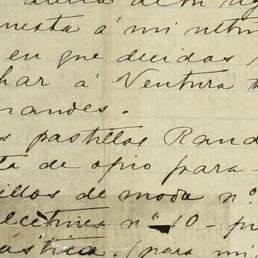 nesta á mi retur
en que decidas
har á Ventura
randes.
s pastillas Rand
ta de opio para
illos de moda nº
lcetines nº 10 - p
astica. (para mi